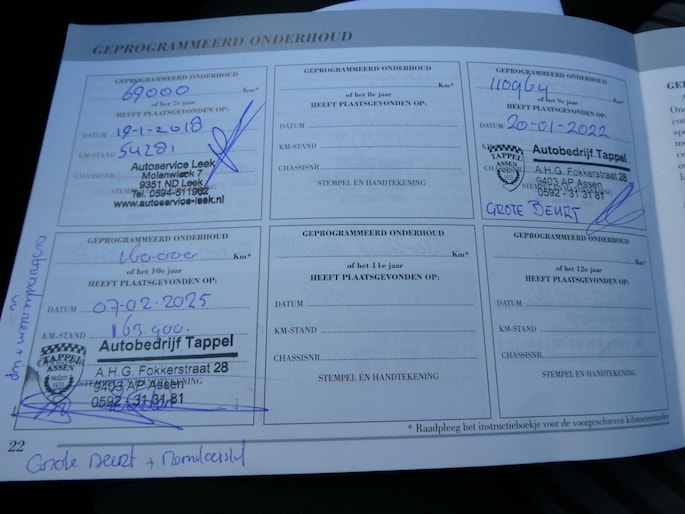 GEPROGRAMMEERD ONDERHOUD
GEPROGRAMMEERD ONDERHOUD
69000 Km*
of het 7e jaar
HEEFT PLAATSGEVONDEN OP:
DATUM 19-1-2018
KM-STAND 54281
CHASSISNR
Autoservice Leek
Molenwieck 7
9351 ND Leek
Tel. 0594-511962
www.autoservice-leek.nl
GEPROGRAMMEERD ONDERHOUD
Km*
of het 8e jaar
HEEFT PLAATSGEVONDEN OP:
DATUM
KM-STAND
CHASSISNR
STEMPEL EN HANDTEKENING
GEPROGRAMMEERD ONDERHOUD
110964 Km*
of het 9e jaar
HEEFT PLAATSGEVONDEN OP:
DATUM 20-01-2022
KM-STAND
CHASSISNR
TAPPEL ASSEN
Autobedrijf Tappel
A.H.G. Fokkerstraat 28
9403 AP Assen
0592 - 31 31 81
GROTE BEURT
GEPROGRAMMEERD ONDERHOUD
Km*
of het 10e jaar
HEEFT PLAATSGEVONDEN OP:
DATUM 07-02-2025
KM-STAND 163.900.
TAPPEL ASSEN
Autobedrijf Tappel
A.H.G. Fokkerstraat 28
9403 AP Assen
0592 - 31 31 81
GEPROGRAMMEERD ONDERHOUD
Km*
of het 11e jaar
HEEFT PLAATSGEVONDEN OP:
DATUM
KM-STAND
CHASSISNR
STEMPEL EN HANDTEKENING
GEPROGRAMMEERD ONDERHOUD
Km*
of het 12e jaar
HEEFT PLAATSGEVONDEN OP:
DATUM
KM-STAND
CHASSISNR
STEMPEL EN HANDTEKENING
* Raadpleeg het instructieboekje voor de voorgeschreven kilometerstanden
22
Grote Beurt +